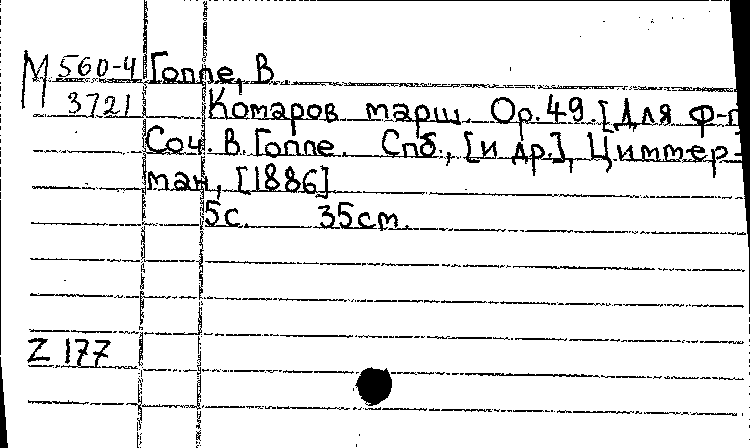 М 560-4 Гоппе, В.
3721 Комаров марш. Op. 49. [Для ф-п
Соч. В. Гоппе. Спб., [и др.], Циммер-
ман, [1886]
5с. 35см.
Z 177